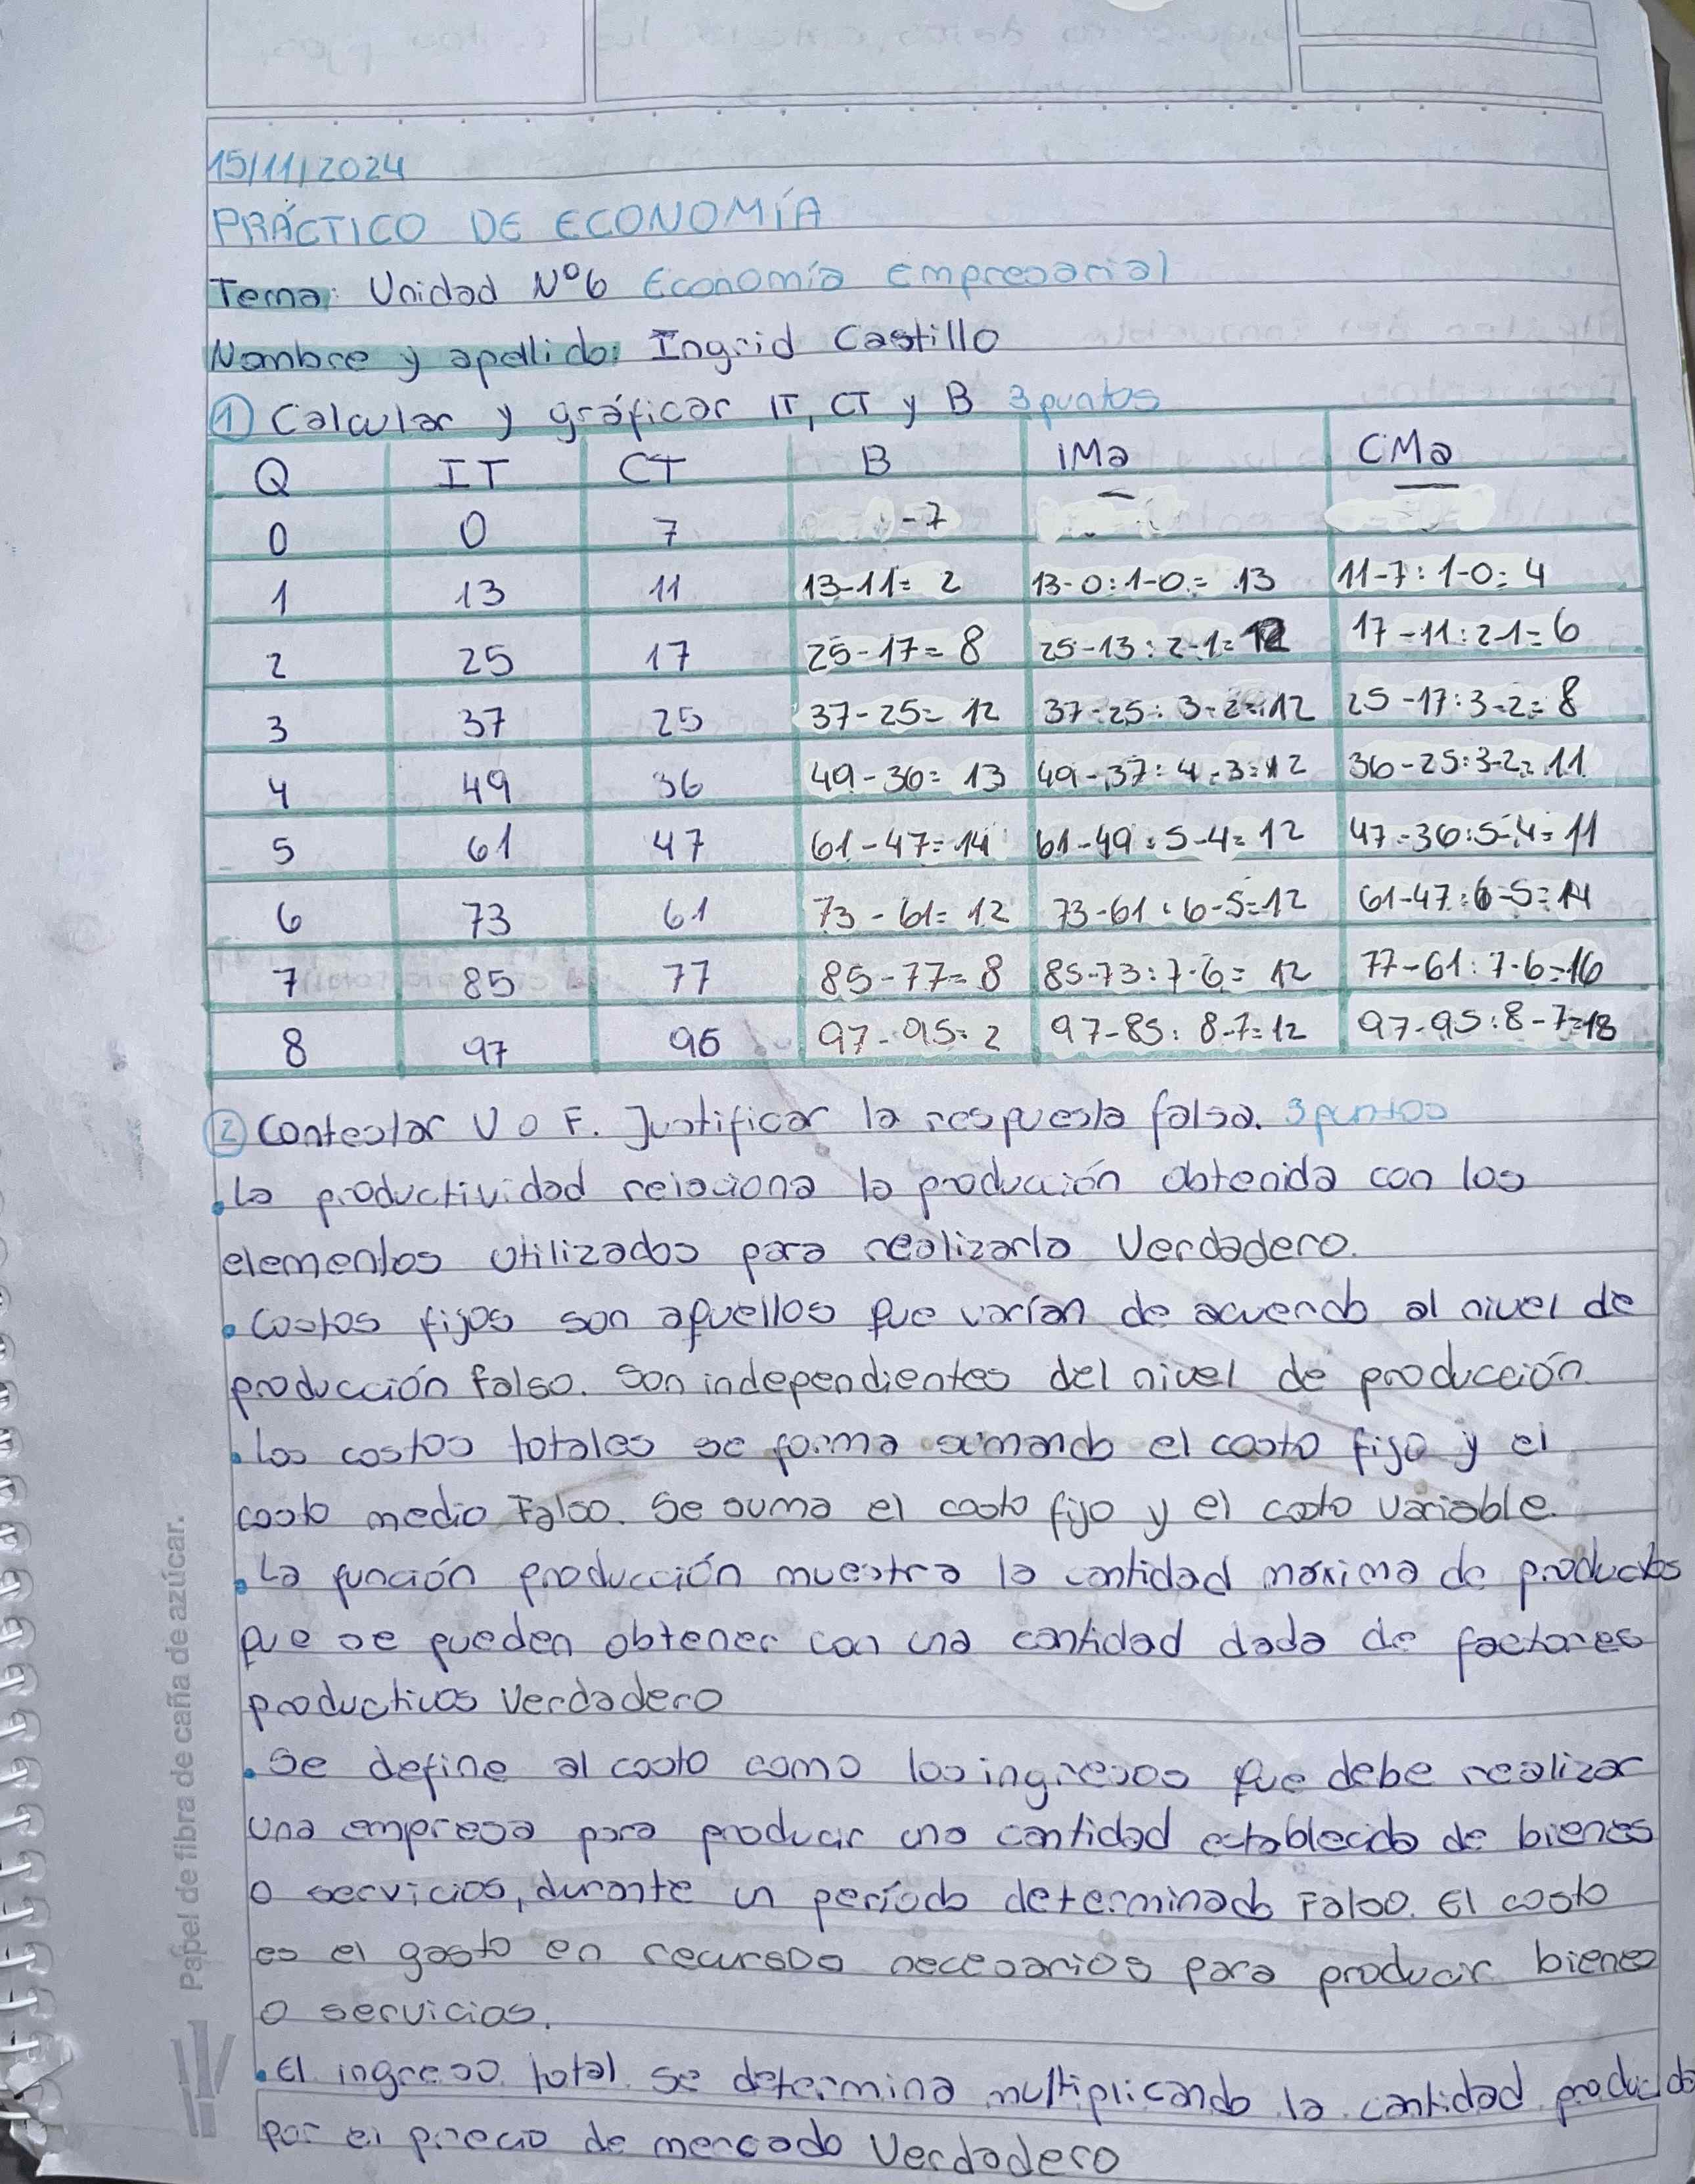 15/11/2024
PRÁCTICO DE ECONOMÍA
Tema: Unidad Nº6 Economía Empresarial
Nombre y apellido: Ingrid Castillo
① Calcular y gráficar IT, CT y B 3 puntos
Q IT CT B IMa CMa
0 0 7 -7 — —
1 13 11 13-11= 2 13-0:1-0= 13 11-7:1-0= 4
2 25 17 25-17= 8 25-13:2-1= 12 17-11:2-1= 6
3 37 25 37-25= 12 37-25:3-2= 12 25-17:3-2= 8
4 49 36 49-36= 13 49-37:4-3= 12 36-25:3-2= 11
5 61 47 61-47= 14 61-49:5-4= 12 47-36:5-4= 11
6 73 61 73-61= 12 73-61:6-5= 12 61-47:6-5= 14
7 85 77 85-77= 8 85-73:7-6= 12 77-61:7-6= 16
8 97 95 97-95= 2 97-85:8-7= 12 97-95:8-7= 18
② Contestar V o F. Justificar la respuesta falsa. 3 puntos
• La productividad relaciona la producción obtenida con los
elementos utilizados para realizarla Verdadero.
• Costos fijos son aquellos que varían de acuerdo al nivel de
producción Falso. Son independientes del nivel de producción.
• Los costos totales se forma sumando el costo fijo y el
costo medio Falso. Se suma el costo fijo y el costo variable.
• La función producción muestra la cantidad máxima de productos
que se pueden obtener con una cantidad dada de factores
productivos Verdadero
• Se define al costo como los ingresos que debe realizar
una empresa para producir una cantidad establecida de bienes
o servicios, durante un período determinado Falso. El costo
es el gasto en recursos necesarios para producir bienes
o servicios.
• El ingreso total se determina multiplicando la cantidad producida
por el precio de mercado Verdadero
Papel de fibra de caña de azúcar.